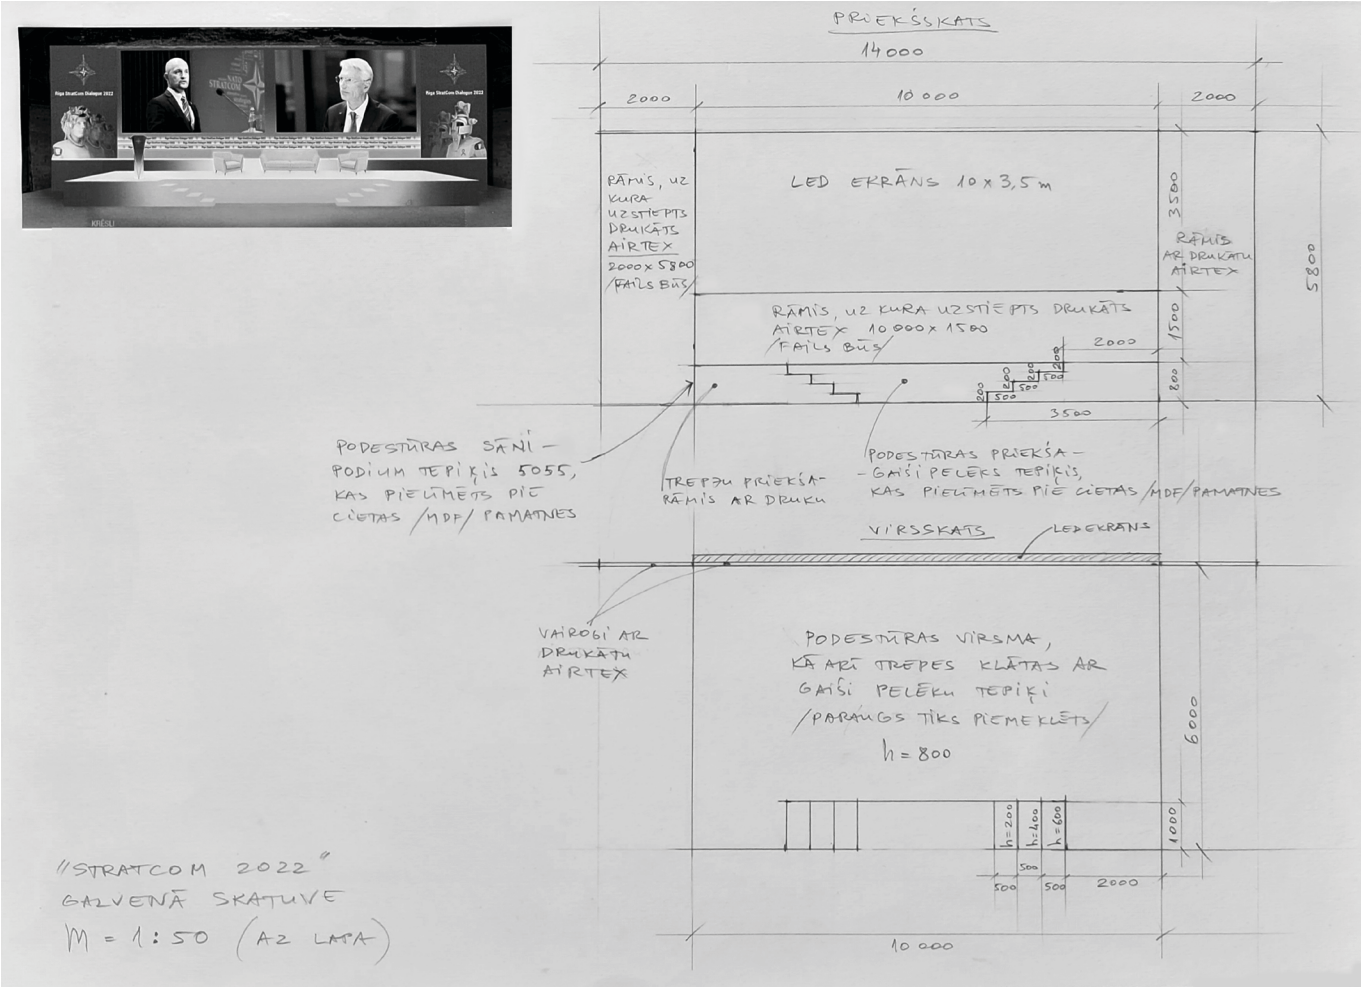 Riga StratCom Dialogue 2022
NATO
STRATCOM
Riga StratCom Dialogue 2022
KRĒSLI
PRIEKŠSKATS
14000
2000
10 000
2000
RĀMIS, UZ
KURA
UZSTIEPTS
DRUKĀTS
AIRTEX
2000 x 5800
/FAILS BŪS/
LED EKRĀNS 10 x 3,5 m
3500
RĀMIS
AR DRUKĀTU
AIRTEX
5800
RĀMIS, UZ KURA UZSTIEPTS DRUKĀTS
AIRTEX 10 000 x 1500
/FAILS BŪS/
1500
2000
200
200
200
200
500
500
500
800
3500
PODESTŪRAS SĀNI –
PODIUM TEPIĶIS 5055,
KAS PIELĪMĒTS PIE
CIETAS /MDF/ PAMATNES
TREPJU PRIEKŠA-
RĀMIS AR DRUKU
PODESTŪRAS PRIEKŠA –
– GAIŠI PELĒKS TEPIĶIS,
KAS PIELĪMĒTS PIE CIETAS /MDF/ PAMATNES
VIRSSKATS
LED EKRĀNS
VAIROGI AR
DRUKĀTU
AIRTEX
PODESTŪRAS VIRSMA,
KĀ ARĪ TREPES KLĀTAS AR
GAIŠI PELĒKU TEPIĶI
/PARAUGS TIKS PIEMEKLĒTS/
h = 800
6000
h=200
h=400
h=600
1000
500
500
500
2000
10 000
"STRATCOM 2022"
GALVENĀ SKATUVE
M = 1 : 50 (A2 LAPA)